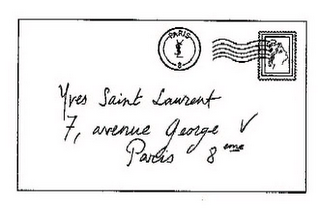 PARIS
YSL
8
Yves Saint Laurent
7, avenue George V
Paris 8ème